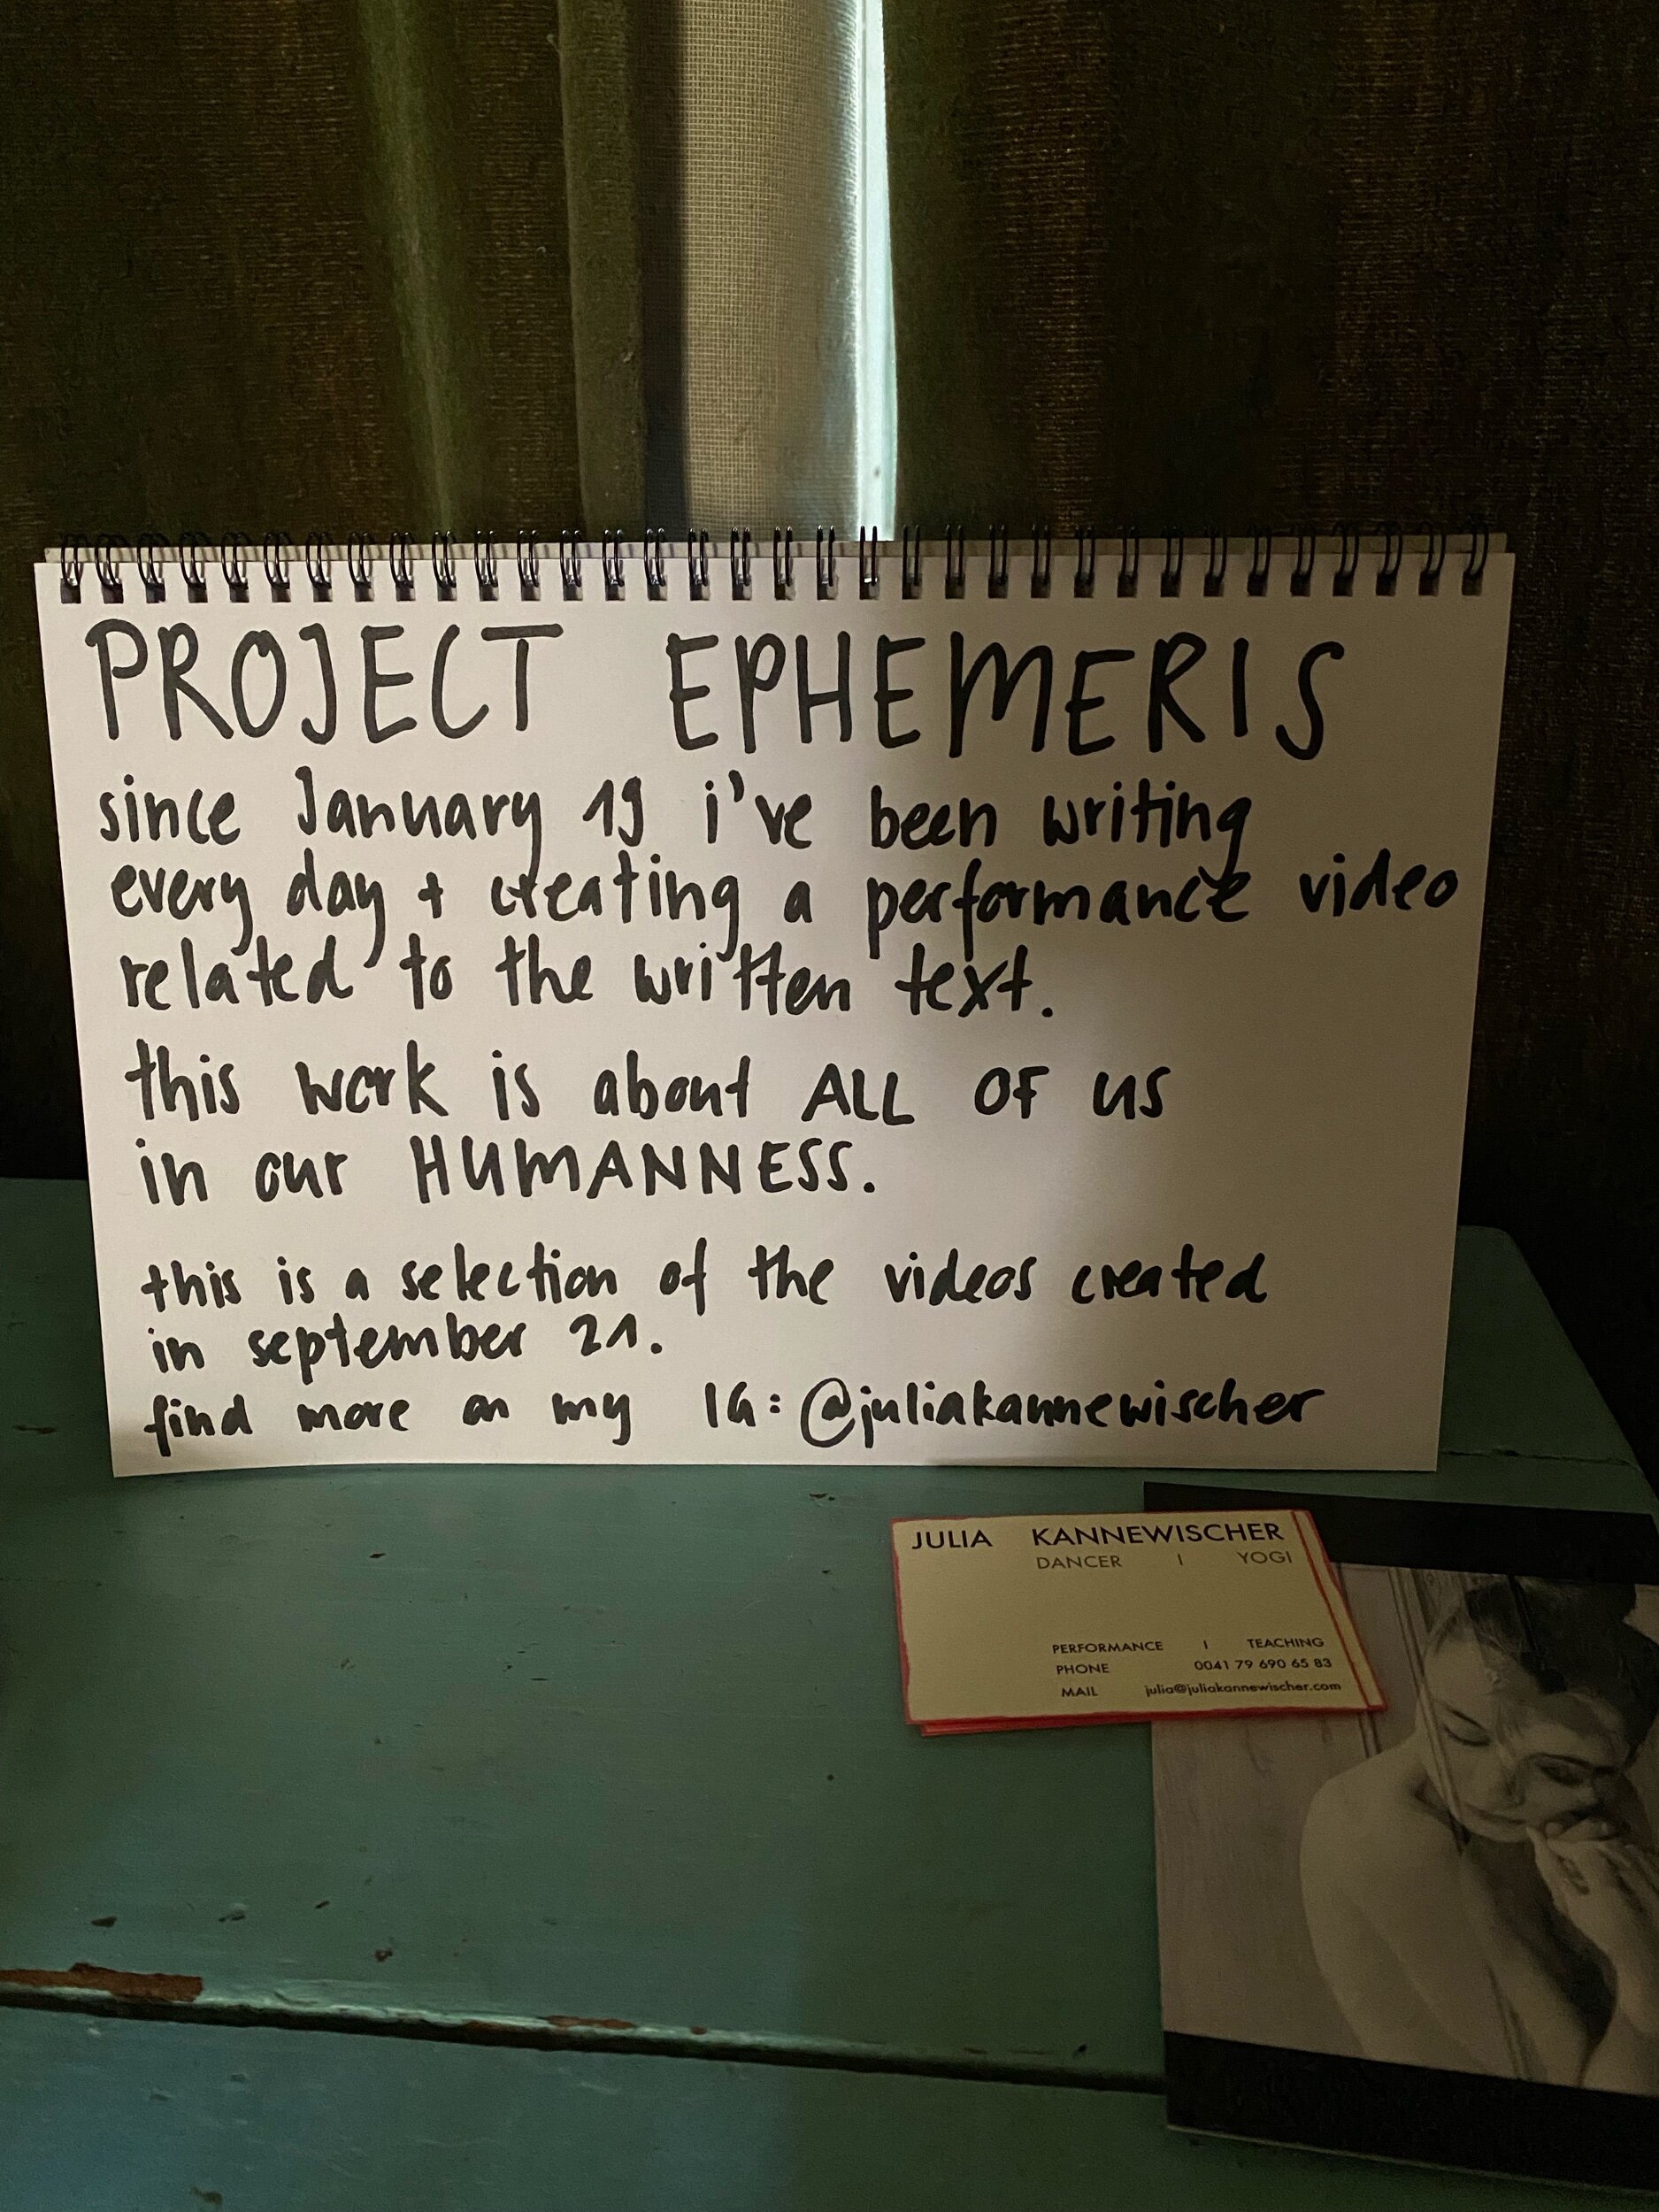 PROJECT EPHEMERIS
since January 19 i've been writing
every day + creating a performance video
related to the written text.
this work is about ALL OF US
in our HUMANNESS.
this is a selection of the videos created
in september 21.
find more on my IG: @juliakannewischer
JULIA KANNEWISCHER
DANCER I YOGI
PERFORMANCE I TEACHING
PHONE 0041 79 690 65 83
MAIL julia@juliakannewischer.com